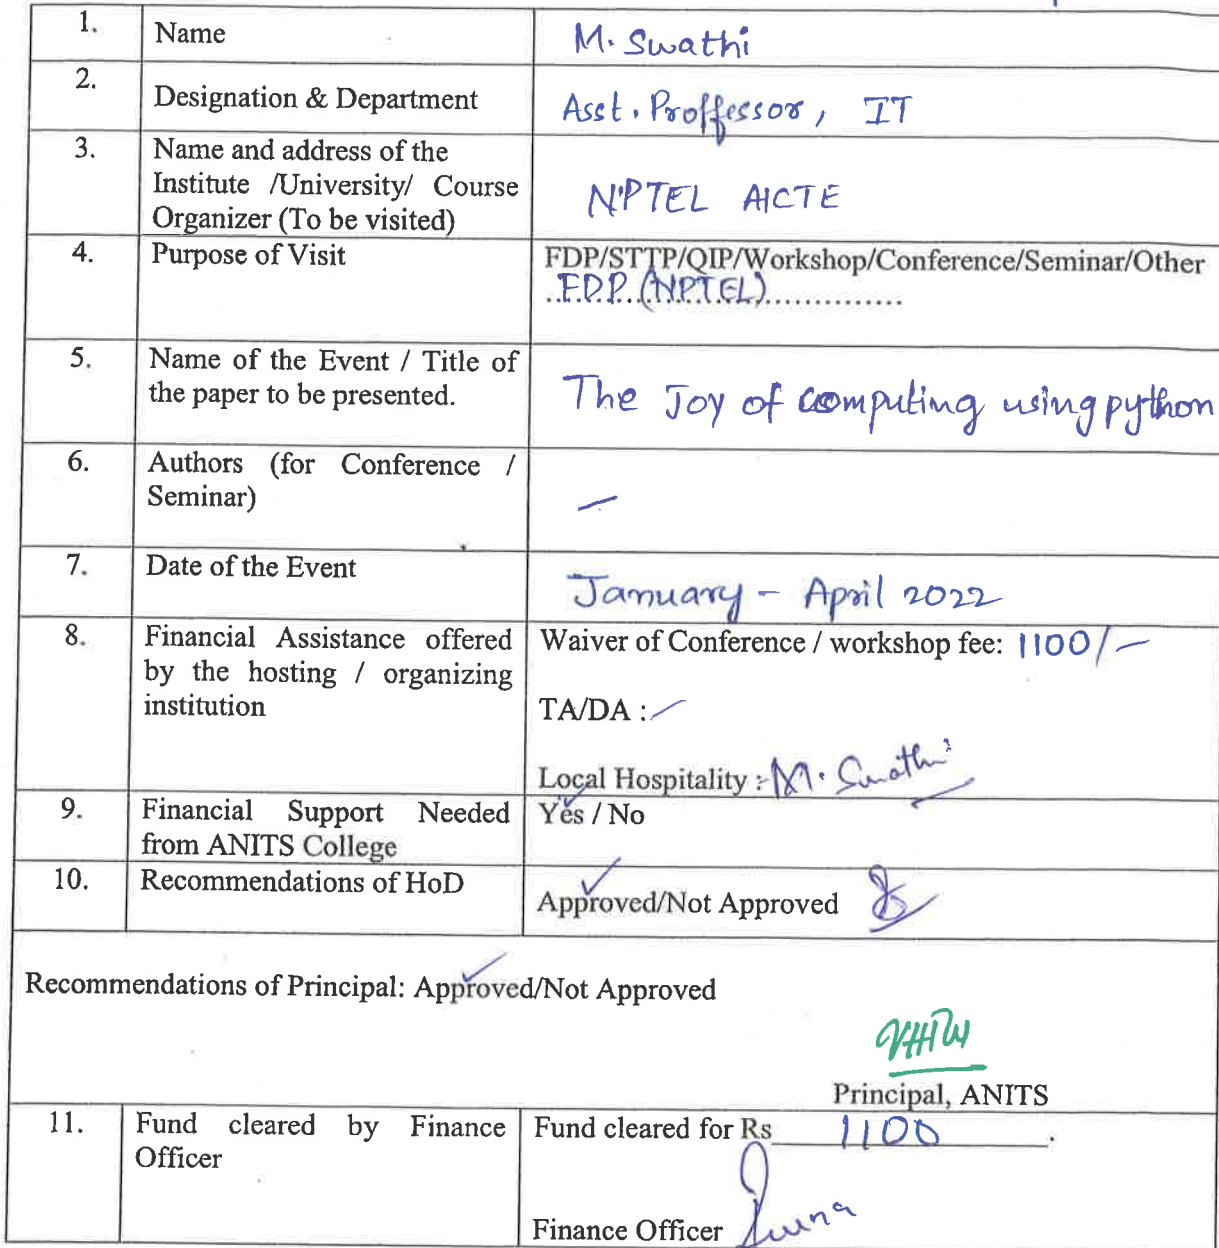 1. Name M. Swathi
2. Designation & Department Asst. Proffessor, IT
3. Name and address of the
Institute /University/ Course
Organizer (To be visited) NPTEL AICTE
4. Purpose of Visit FDP/STTP/QIP/Workshop/Conference/Seminar/Other
..F.D.P. (NPTEL)...............
5. Name of the Event / Title of
the paper to be presented. The Joy of computing using python
6. Authors (for Conference /
Seminar) –
7. Date of the Event January – April 2022
8. Financial Assistance offered Waiver of Conference / workshop fee: 1100/–
by the hosting / organizing
institution TA/DA : –
Local Hospitality : M. Swathi
9. Financial Support Needed Yes / No
from ANITS College
10. Recommendations of HoD Approved/Not Approved
Recommendations of Principal: Approved/Not Approved
Principal, ANITS
11. Fund cleared by Finance Fund cleared for Rs 1100.
Officer
Finance Officer